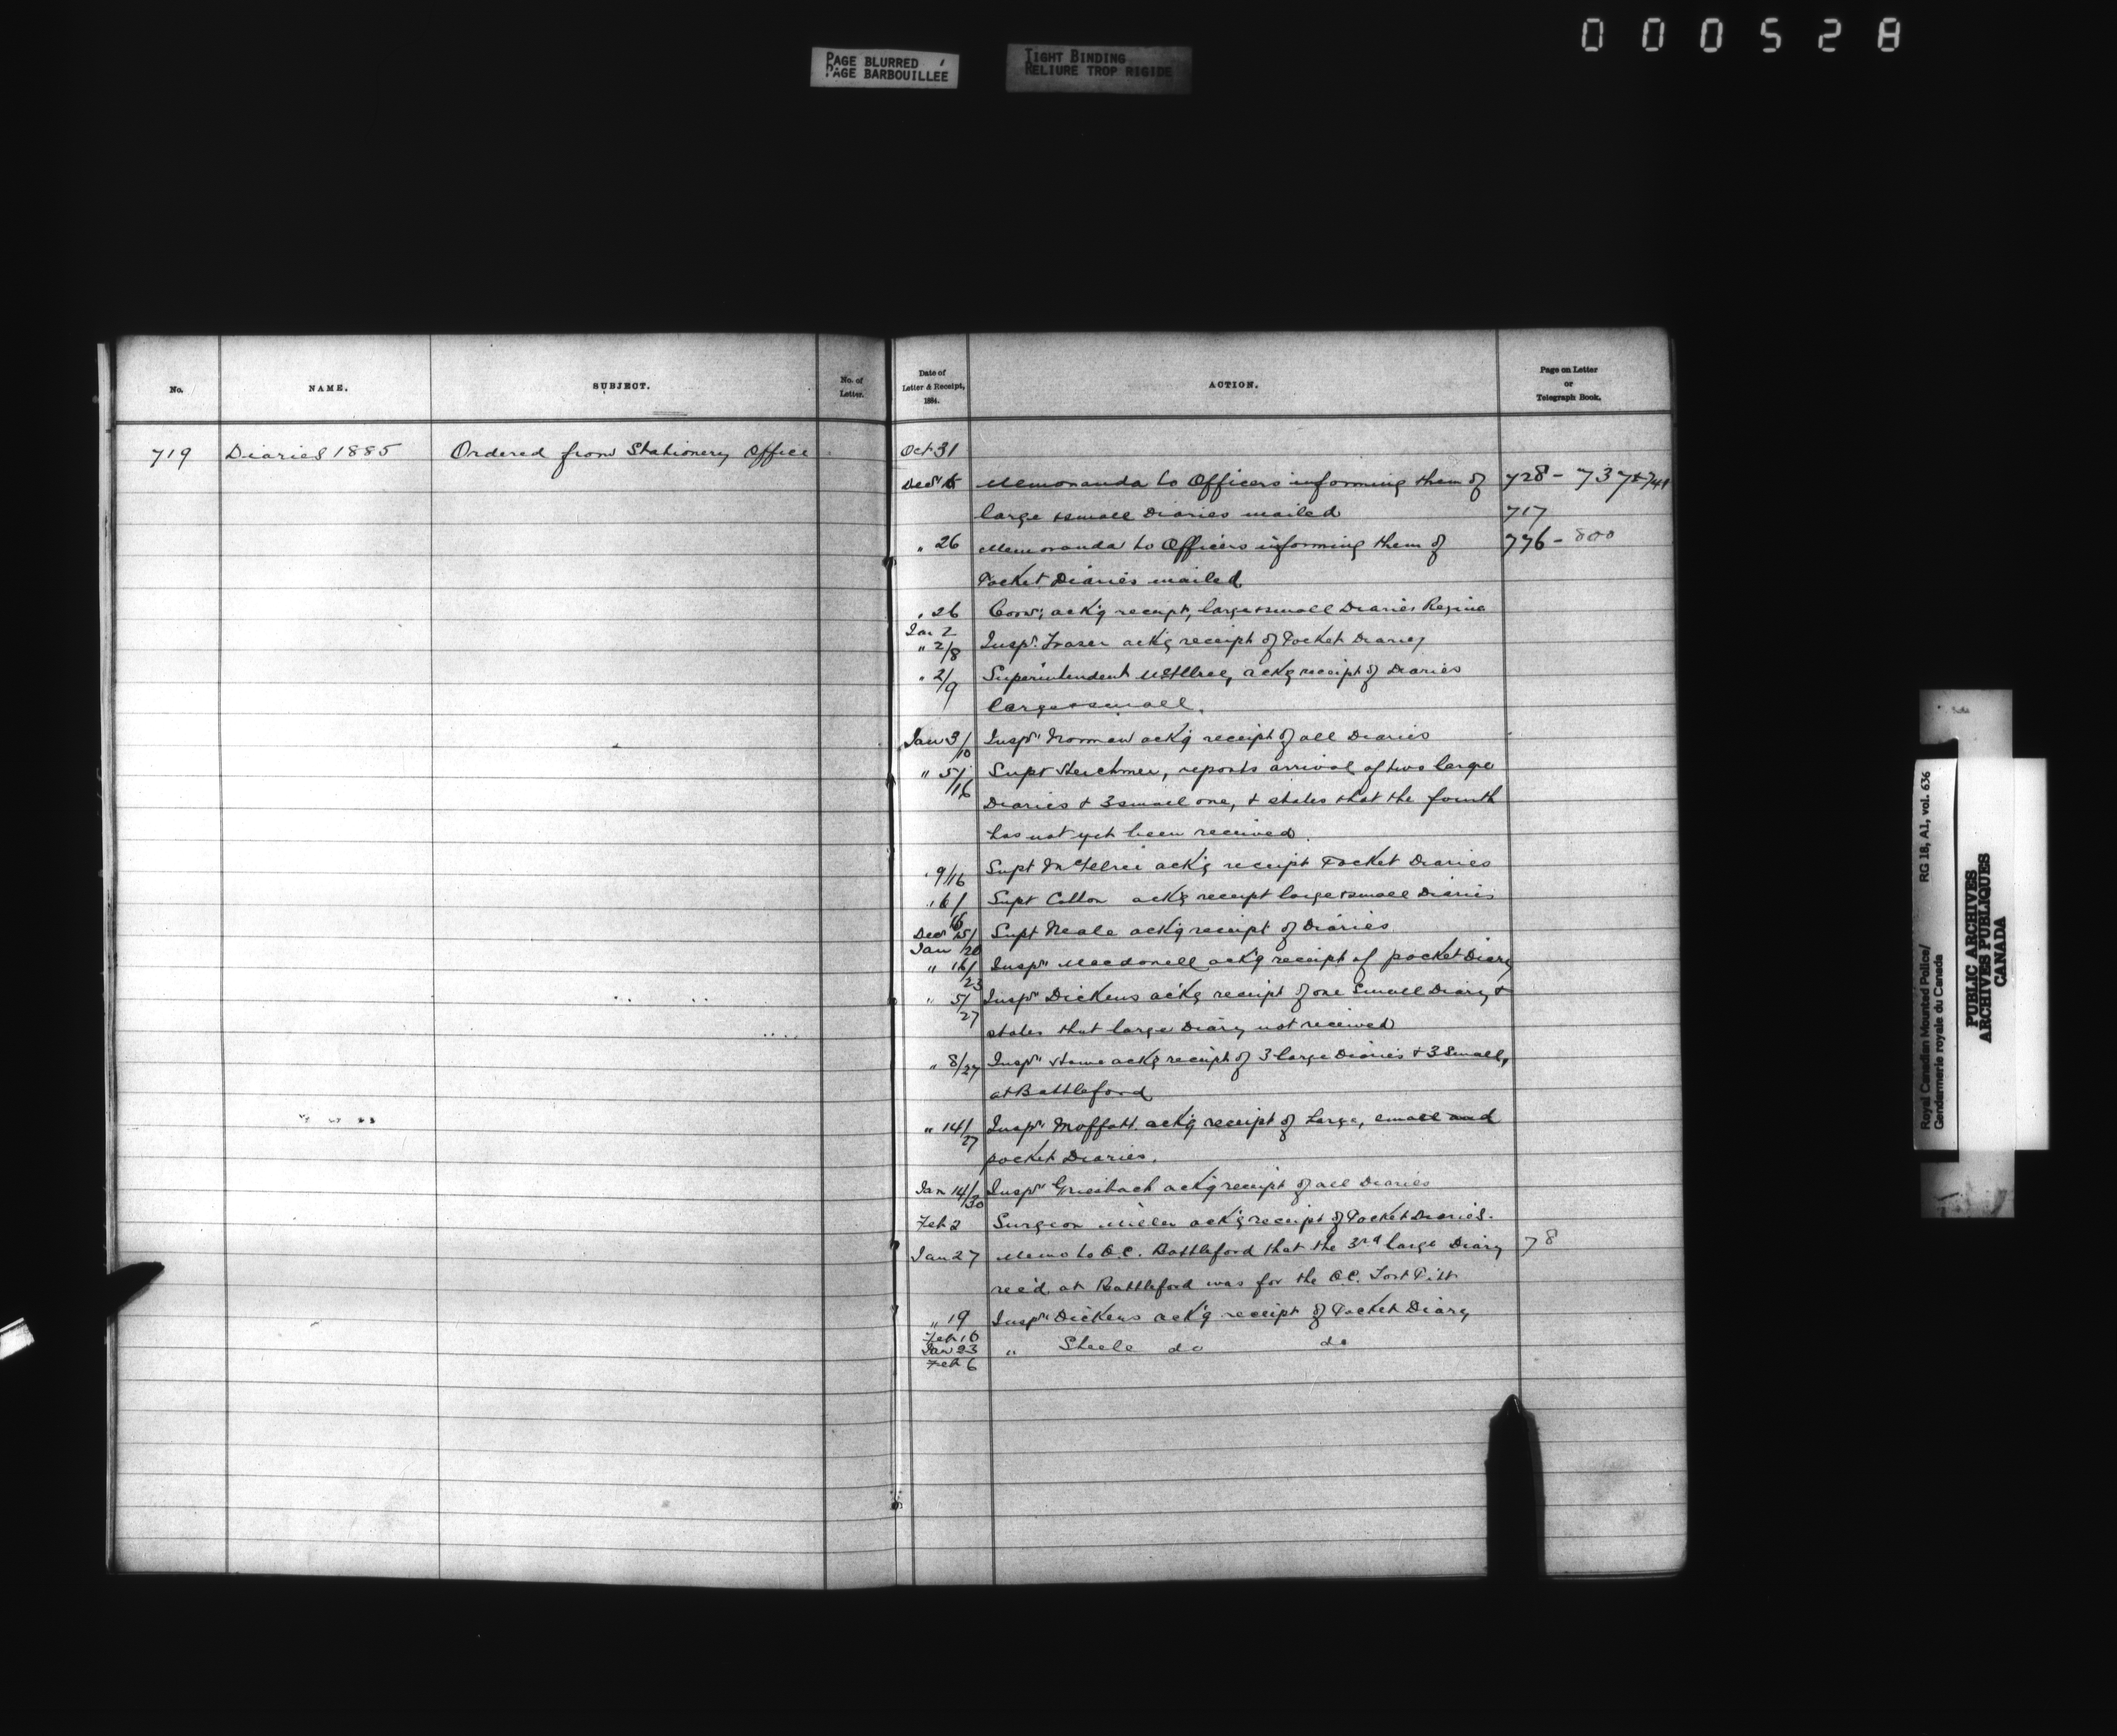 000528
PAGE BLURRED
PAGE BARBOUILLEE
TIGHT BINDING
RELIURE TROP RIGIDE
No.
NAME.
SUBJECT.
No. of
Letter.
Date of
Letter & Receipt,
1884.
ACTION.
Page on Letter
or
Telegraph Book.
719 Diaries 1885 Ordered from Stationery Office Oct 31
Decr Memoranda to Officers informing them of 728 - 737 & 741
large & small Diaries mailed 717
" 26 Memoranda to Officers informing them of 776 - 800
Pocket Diaries mailed
" 26 Comr; ack'g receipt, large & small Diaries Regina
Jan 2
" 2/8 Inspr. Fraser ack'g receipt of Pocket Diary
" 2/9 Superintendent ack'g receipt of Diaries
large & small.
Jan 3/10 Inspr Norman ack'g receipt of all Diaries
" 5/16 Supt Herchmer, reports arrival of two large
Diaries & 3 small one, & states that the fourth
has not yet been received.
" 9/16 Supt McIllree ack'g receipt Pocket Diaries
" 6/16 Supt Cotton ack'g receipt large & small Diaries
Decr 15/
Jan /20 Supt Neale ack'g receipt of Diaries
" 16/23 Inspr Macdonell ack'g receipt of pocket Diary
" 5/27 Inspr Dickens ack'g receipt of one Small Diary &
states that large Diary not received
" 8/27 Inspr Howe ack'g receipt of 3 large Diaries & 3 Small,
at Battleford
" 14/27 Inspr Moffatt ack'g receipt of Large, small and
pocket Diaries.
Jan 14/30 Inspr Griesbach ack'g receipt of all Diaries
Feb 2 Surgeon Miller ack'g receipt of Pocket Diaries.
Jan 27 Memo to O.C. Battleford that the 3rd large Diary 78
rec'd at Battleford was for the O.C. Fort Pitt
" 19
Feb 10 Inspr Dickens ack'g receipt of Pocket Diary
Jan 23
Feb 6 " Steele do do
Royal Canadian Mounted Police/ RG 18, A1, vol. 636
Gendarmerie royale du Canada
PUBLIC ARCHIVES
ARCHIVES PUBLIQUES
CANADA